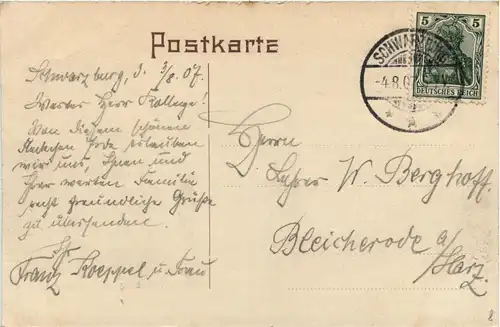 Postkarte
Schwarzburg, d. 3/8. 07.
Werter Herr Kollege!
Von diesem schönen
Fleckchen Erde erlauben
wir uns, Ihnen und
Ihrer werten Familie
recht freundliche Grüße
zu übersenden.
Ihr
Franz Koeppel u. Frau
SCHWARZBURG
-4.8.0
5 5
DEUTSCHES REICH
Herrn
Lehrer W. Berghoff
Bleicherode a/
Harz.